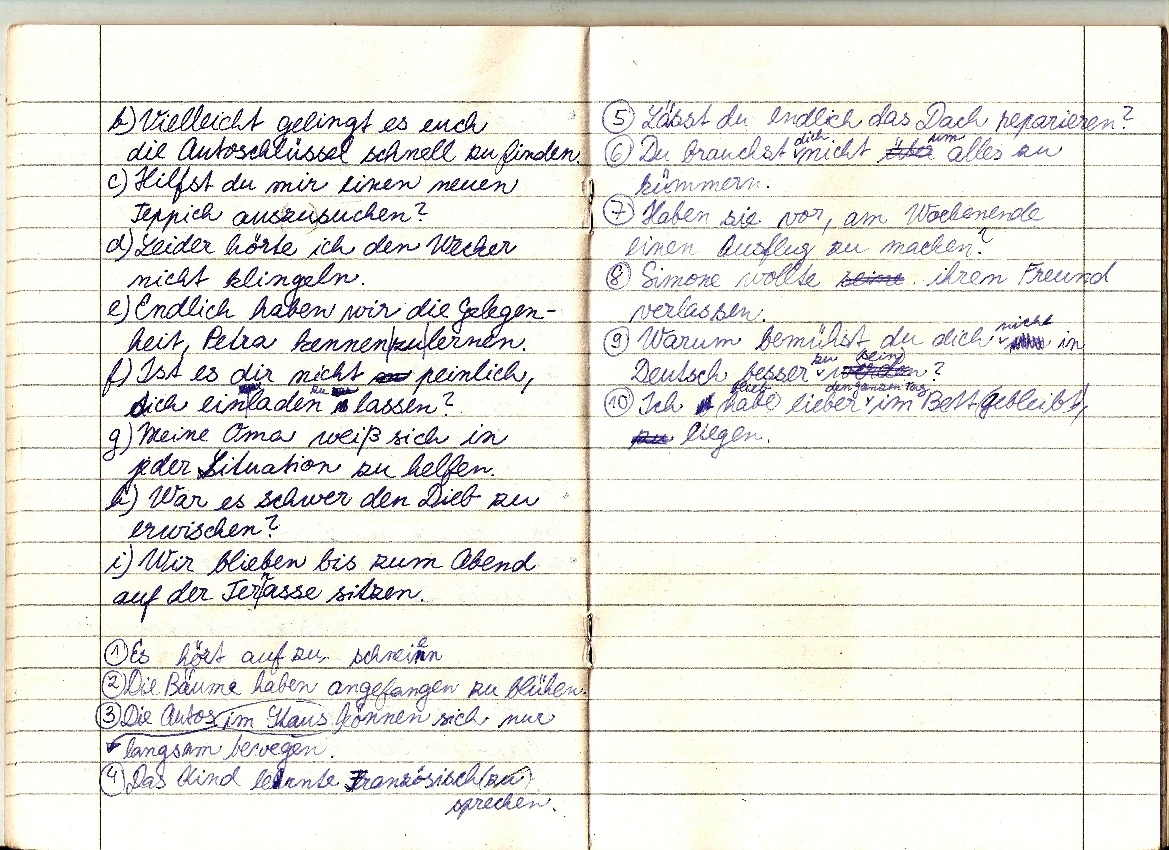 b) Vielleicht gelingt es euch
die Autoschlüssel schnell zu finden.
c) Hilfst du mir einen neuen
Teppich auszusuchen?
d) Leider hörte ich den Wecker
nicht klingeln.
e) Endlich haben wir die Gelegen-
heit, Petra kennen|zu|lernen.
f) Ist es dir nicht peinlich,
dich einladen zu lassen?
g) Meine Oma weiß sich in
jeder Situation zu helfen.
h) War es schwer den Dieb zu
erwischen?
i) Wir blieben bis zum Abend
auf der Terrasse sitzen.
1 Es hört auf zu schneien
2 Die Bäume haben angefangen zu blühen.
3 Die Autos im Staus können sich nur
langsam bewegen.
4 Das Kind lernte Französisch (zu)
sprechen.
5 Lässt du endlich das Dach reparieren?
6 Du brauchst dich nicht um alles zu
kümmern.
7 Haben sie vor, am Wochenende
einen Ausflug zu machen?
8 Simone wollte seine ihrem Freund
verlassen.
9 Warum bemühst du dich nicht in
Deutsch besser zu sein?
10 Ich blieb habe lieber den ganzen Tag im Bett gebleibt,
zu liegen.